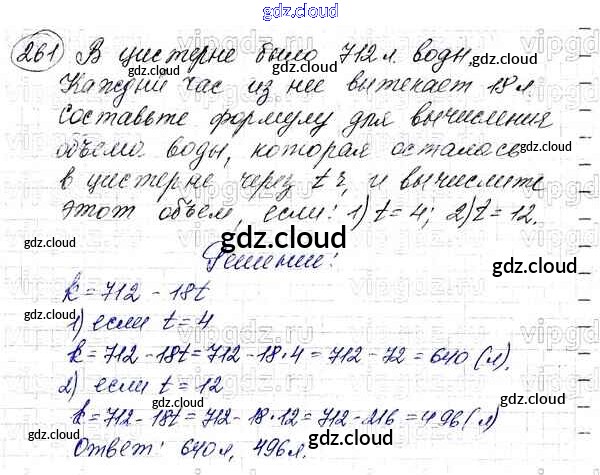 gdz.cloud
261 В цистерне было 712 л воды,
Каждый час из нее вытекает 18 л
gdz.cloud gdz.cloud
Составьте формулу для вычисления
объема воды, которая осталась
gdz.cloud
в цистерне через t г, и вычислите
этот объем, если: 1) t = 4; 2) t = 12.
gdz.cloud gdz.cloud
Решение:
gdz.cloud
k = 712 - 18t
1) если t = 4
gdz.cloud
k = 712 - 18t = 712 - 18·4 = 712 - 72 = 640 (л).
2) если t = 12
gdz.cloud
k = 712 - 18t = 712 - 18·12 = 712 - 216 = 496 (л)
gdz.cloud
Ответ: 640 л, 496 л.
gdz.cloud